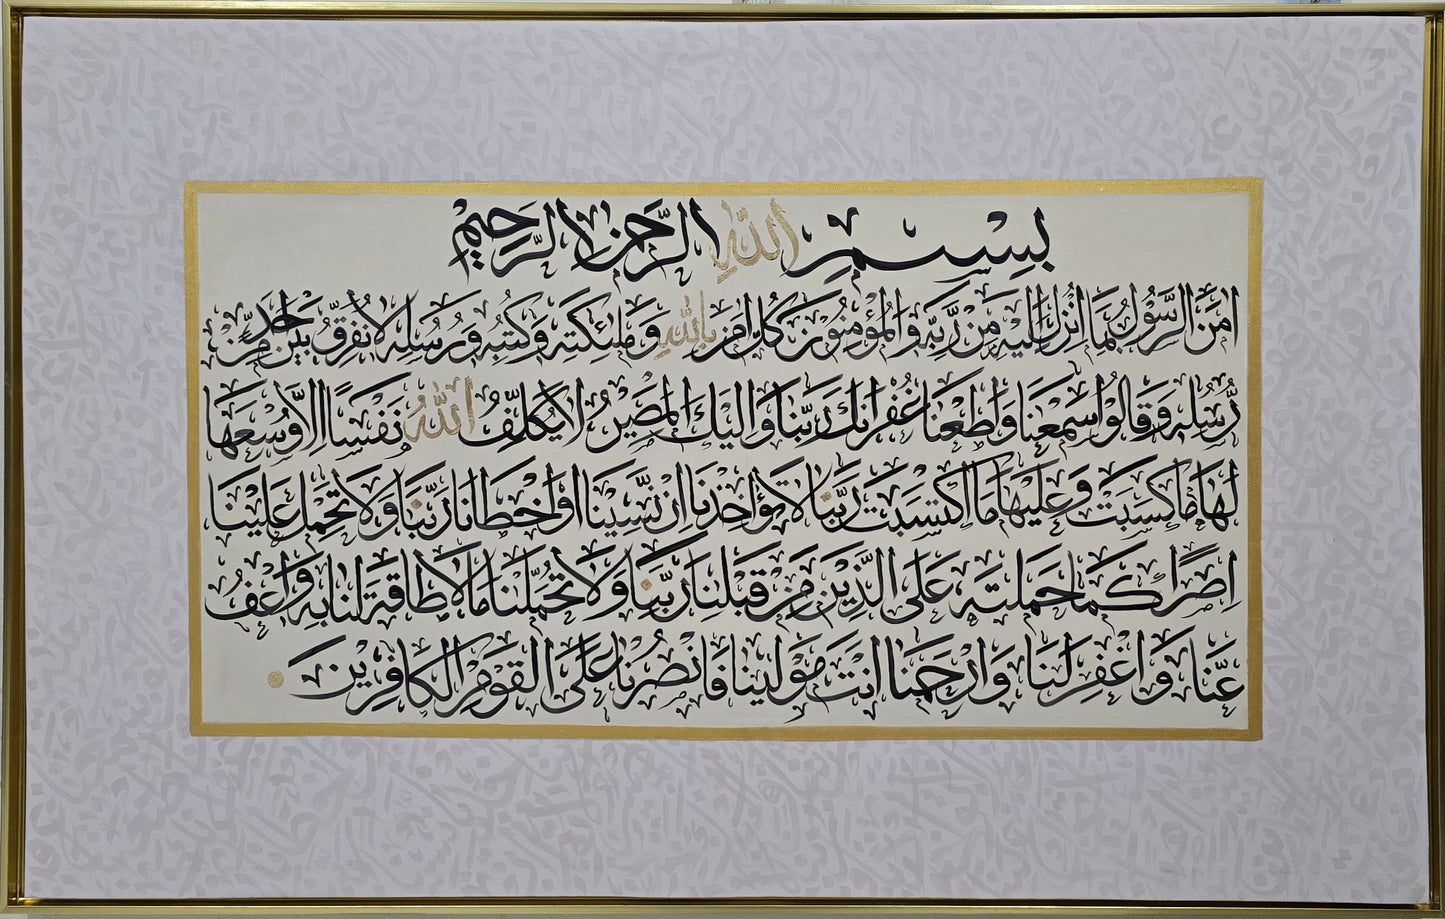 بِسْمِ اللهِ الرَّحْمٰنِ الرَّحِيْمِ
اٰمَنَ الرَّسُوْلُ بِمَا اُنْزِلَ اِلَيْهِ مِنْ رَّبِّهٖ وَالْمُؤْمِنُوْنَ كُلٌّ اٰمَنَ بِاللهِ وَمَلٰئِكَتِهٖ وَكُتُبِهٖ وَرُسُلِهٖ لَا نُفَرِّقُ بَيْنَ اَحَدٍ مِّنْ
رُّسُلِهٖ وَقَالُوْا سَمِعْنَا وَاَطَعْنَا غُفْرَانَكَ رَبَّنَا وَاِلَيْكَ الْمَصِيْرُ لَا يُكَلِّفُ اللهُ نَفْسًا اِلَّا وُسْعَهَا
لَهَا مَا كَسَبَتْ وَعَلَيْهَا مَا اكْتَسَبَتْ رَبَّنَا لَا تُؤَاخِذْنَا اِنْ نَّسِيْنَا اَوْ اَخْطَاْنَا رَبَّنَا وَلَا تَحْمِلْ عَلَيْنَا
اِصْرًا كَمَا حَمَلْتَهٗ عَلَى الَّذِيْنَ مِنْ قَبْلِنَا رَبَّنَا وَلَا تُحَمِّلْنَا مَا لَا طَاقَةَ لَنَا بِهٖ وَاعْفُ
عَنَّا وَاغْفِرْ لَنَا وَارْحَمْنَا اَنْتَ مَوْلٰينَا فَانْصُرْنَا عَلَى الْقَوْمِ الْكَافِرِيْنَ